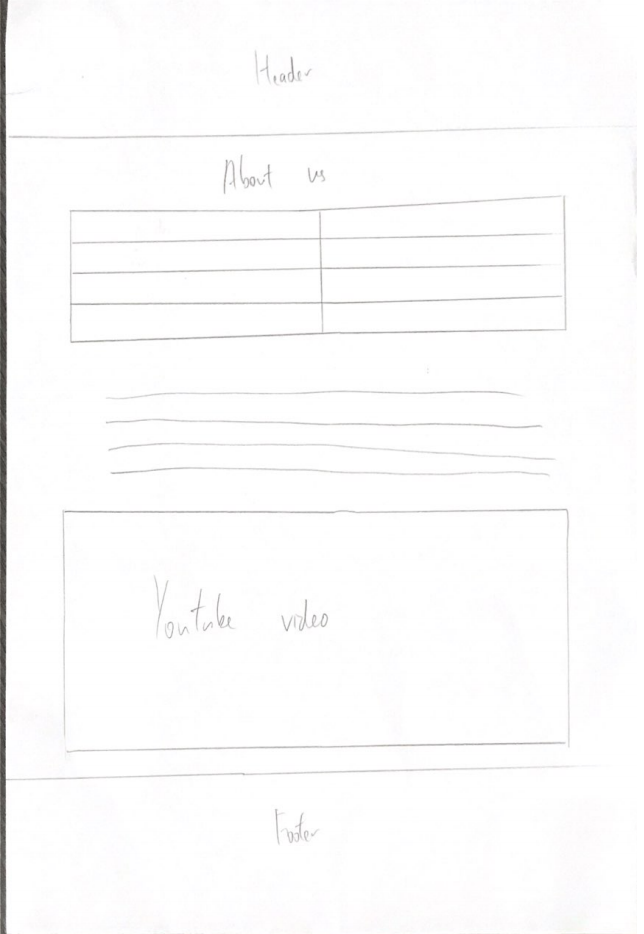 Header
About us
Youtube video
Footer